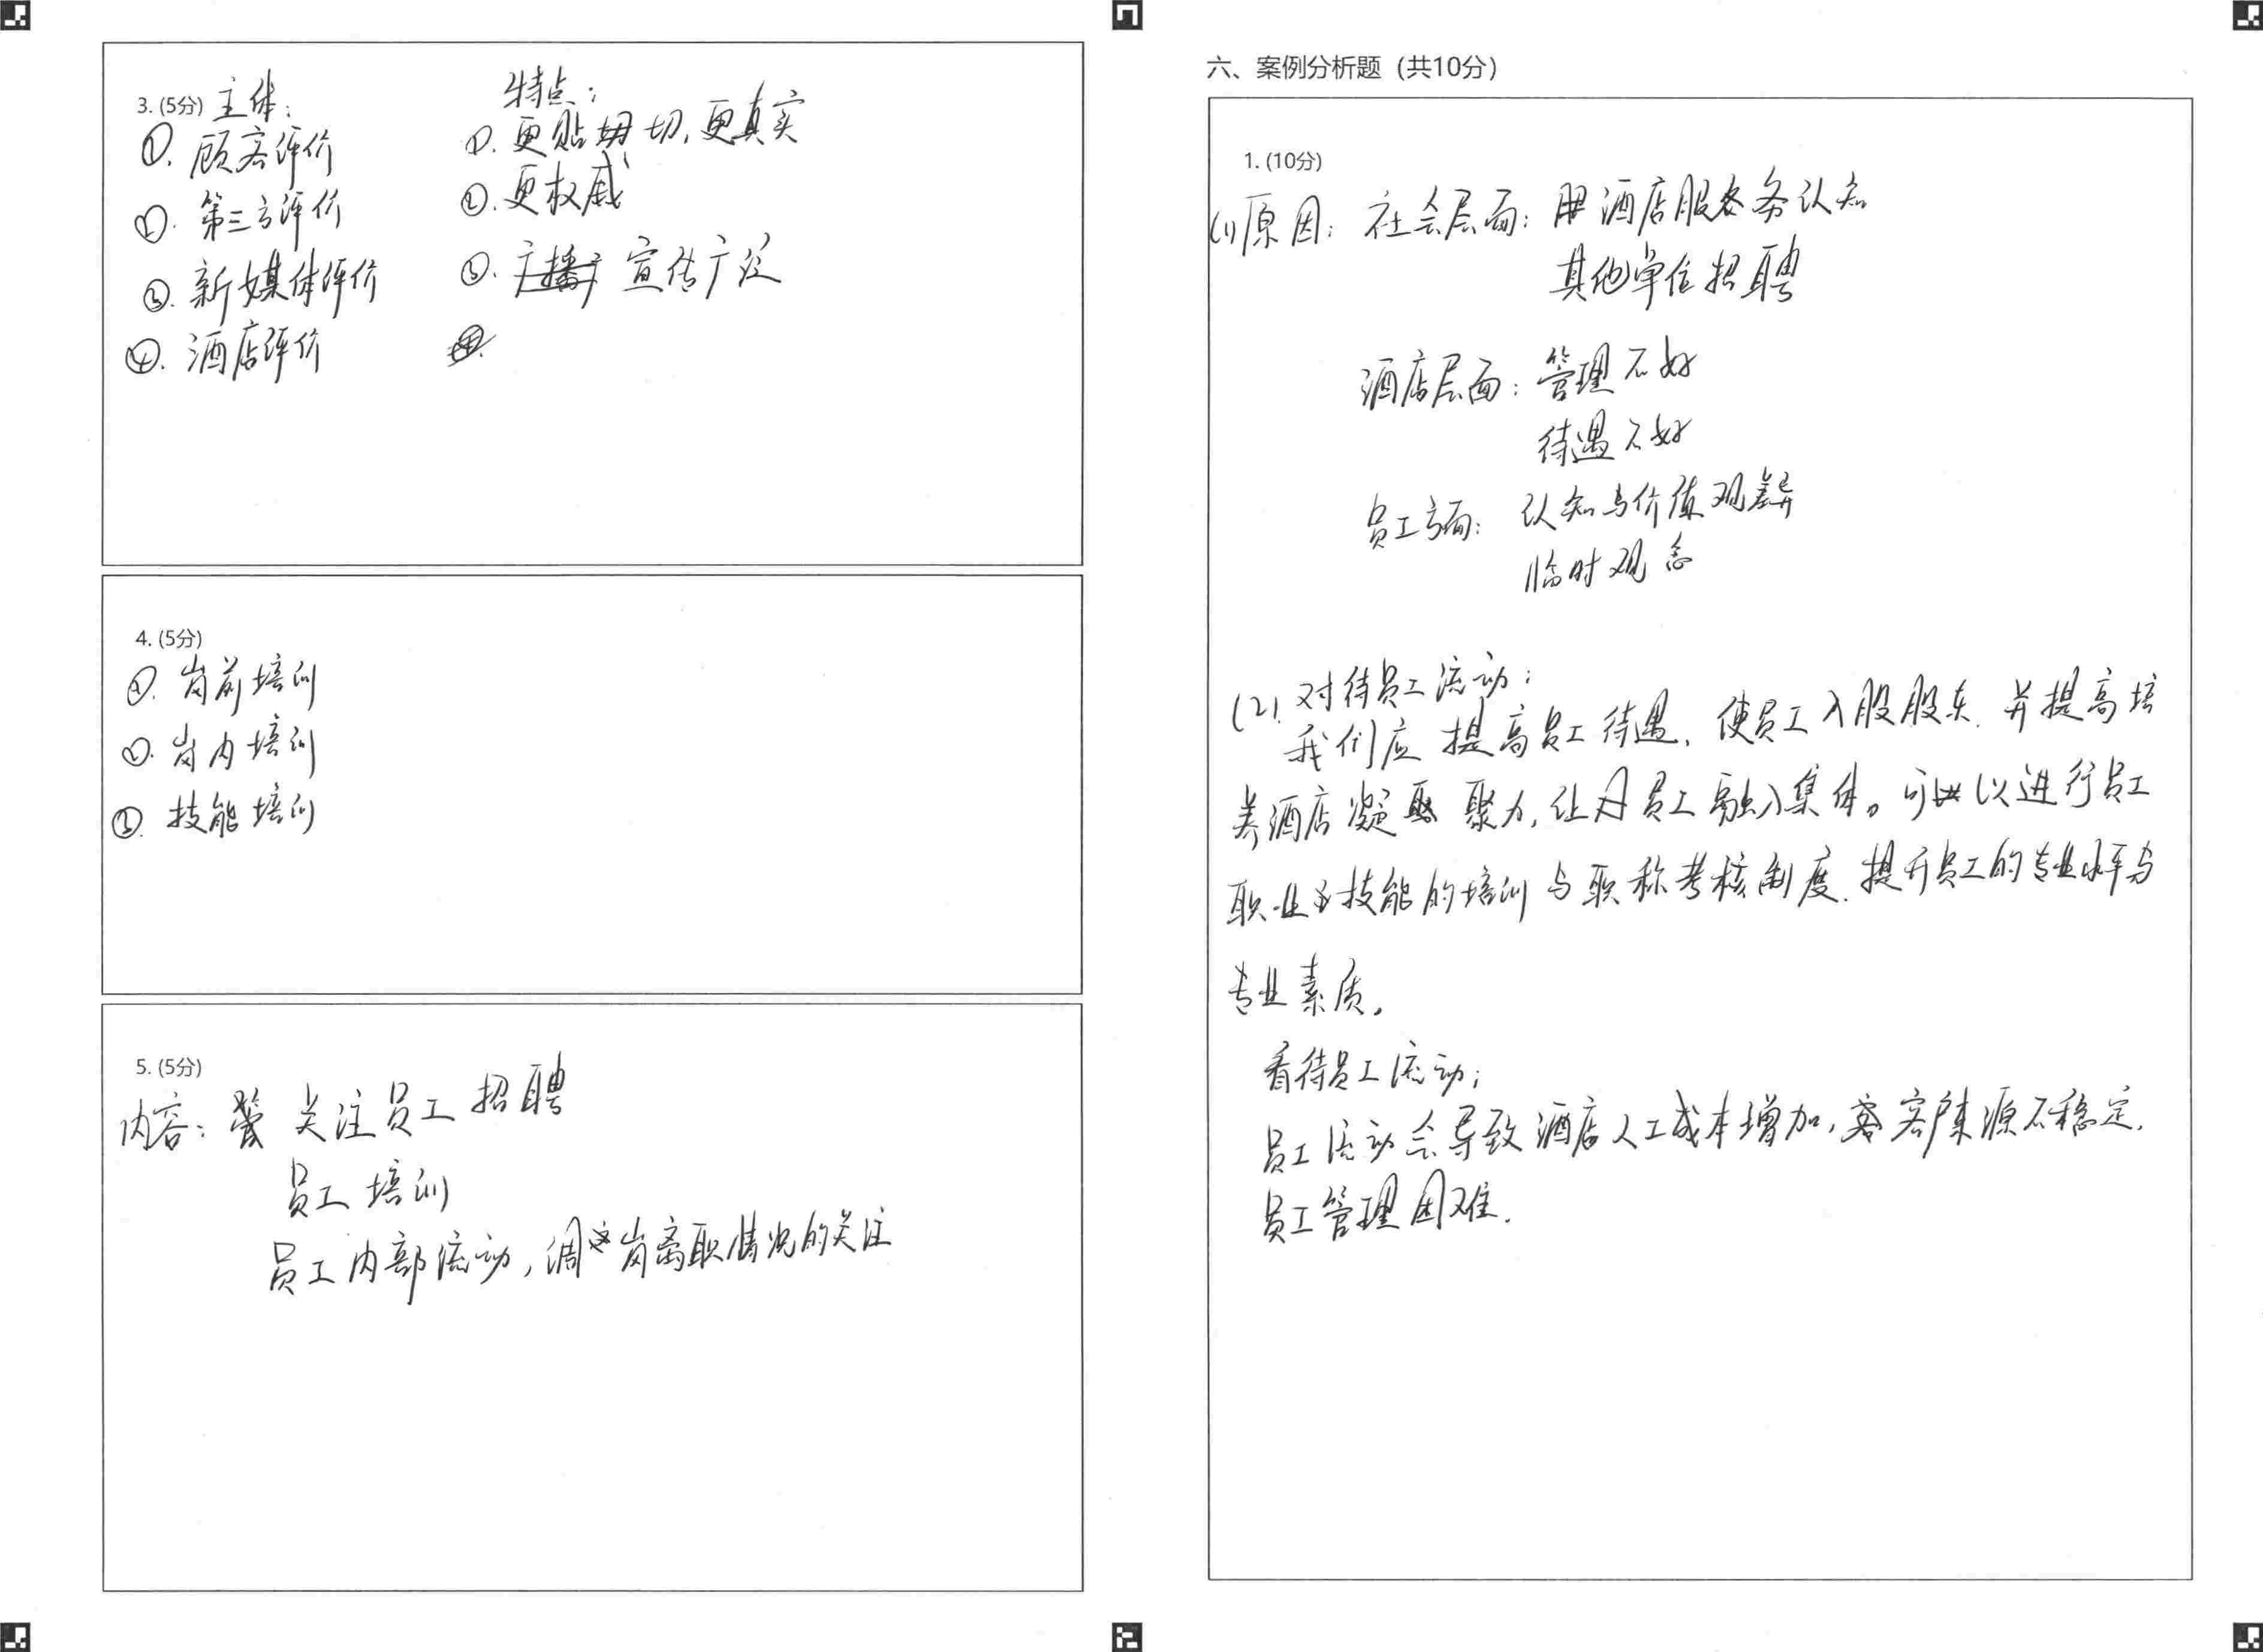 3. (5分) 主体：
①. 顾客评价
②. 第三方评价
③. 新媒体评价
④. 酒店评价
特点：
①. 更贴切, 更真实
②. 更权威
③. 宣传广泛
④.
4. (5分)
①. 岗前培训
②. 岗内培训
③. 技能培训
5. (5分)
内容：关注员工招聘
员工培训
员工内部流动，调岗离职情况的关注
六、案例分析题（共10分）
1. (10分)
(1)原因：社会层面：酒店服务认知
其他单位招聘
酒店层面：管理不好
待遇不好
员工方面：认知与价值观差异
临时观念
(2). 对待员工流动：
我们应提高员工待遇, 使员工入股股东. 并提高培
养酒店凝聚力, 让员工融入集体。可以进行员工
职业技能的培训与职称考核制度. 提升员工的专业水平与
专业素质。
看待员工流动；
员工流动会导致酒店人工成本增加, 客源不稳定.
员工管理困难.